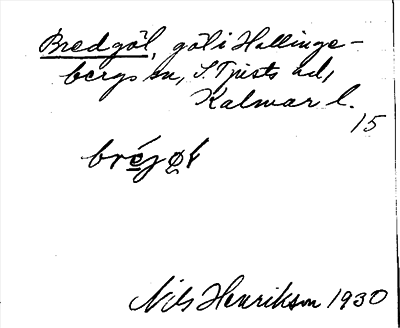 Bredgöl, göl i Hallinge-
bergs sn, S. Tjusts hd,
Kalmar l.
15
bréjøl
Nils Henrikson 1930